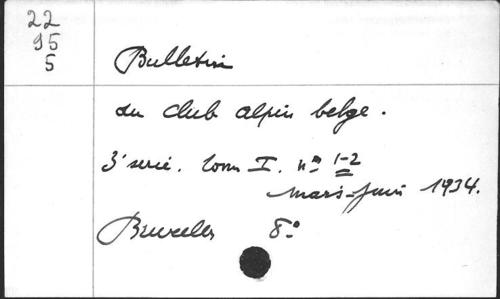 22
95
5
Bulletin
du club alpin belge.
3ᵉ serie. Tom I. nº 1-2
mars-juin 1934.
Bruxelles 8º